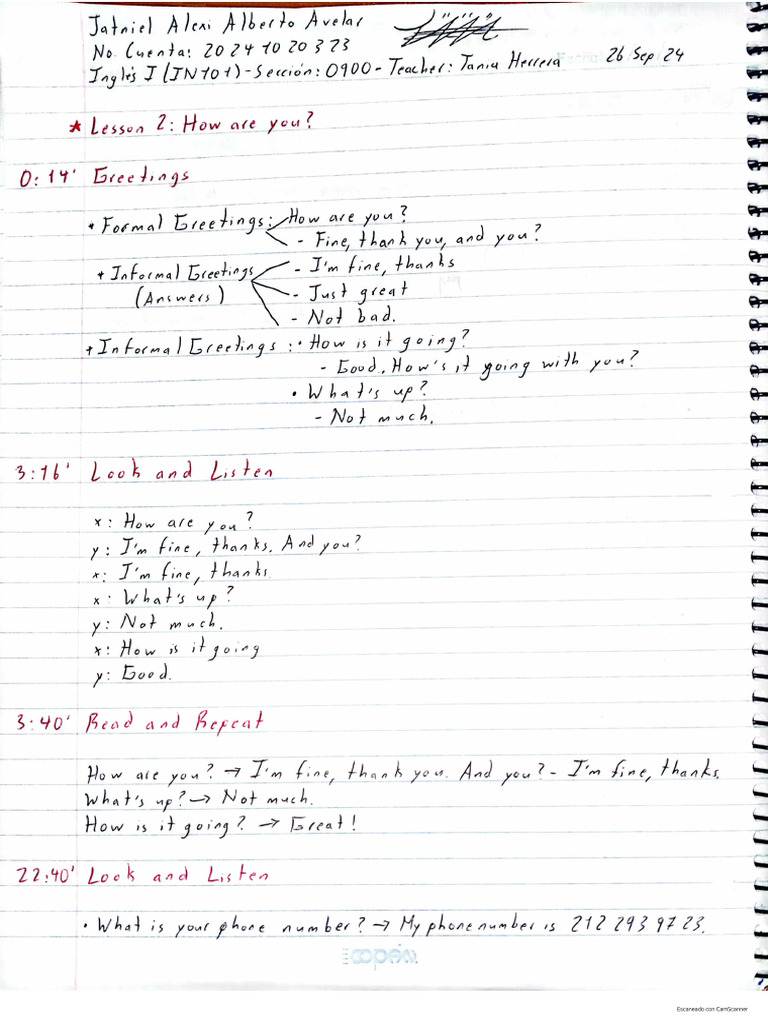 Jatniel Alexi Alberto Avelar
No. Cuenta: 20241020323
Inglés I (IN101) - Sección: 0900 - Teacher: Tania Herrera 26 Sep 24
* Lesson 2: How are you?
0:14' Greetings
* Formal Greetings: How are you?
- Fine, thank you, and you?
* Informal Greetings - I'm fine, thanks
(Answers) - Just great
- Not bad.
* Informal Greetings: • How is it going?
- Good. How's it going with you?
• What's up?
- Not much.
3:16' Look and Listen
x: How are you?
y: I'm fine, thanks. And you?
x: I'm fine, thanks
x: What's up?
y: Not much.
x: How is it going
y: Good.
3:40' Read and Repeat
How are you? → I'm fine, thank you. And you? - I'm fine, thanks.
What's up? → Not much.
How is it going? → Great!
22:40' Look and Listen
• What is your phone number? → My phone number is 212 293 9723.
copán
Escaneado con CamScanner